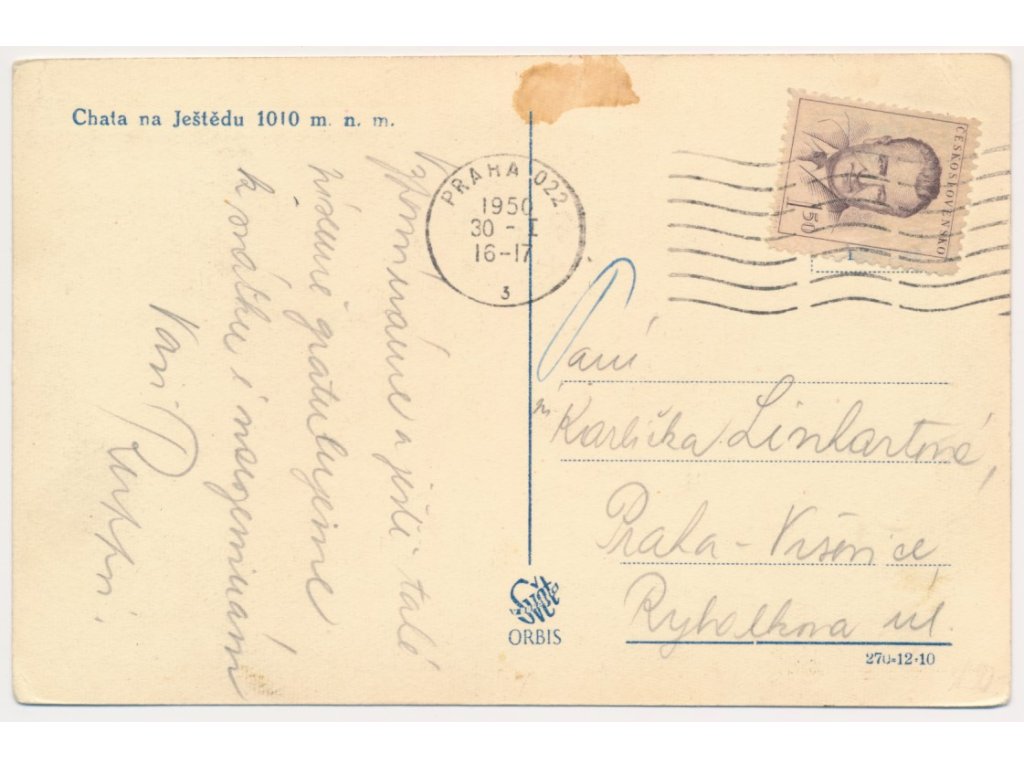 Chata na Ještědu 1010 m. n. m.
Vzpomínáme a ještě také
hvězdně gratulujeme
k svátku i narozeninám!
Vaši
PRAHA 022
1950
30 - I
16-17
3
ČESKOSLOVENSKO
1.50
Paní
Karlička Linhartová,
Praha - Vršovice
Rybalkova ul.
ORBIS
270-12-10